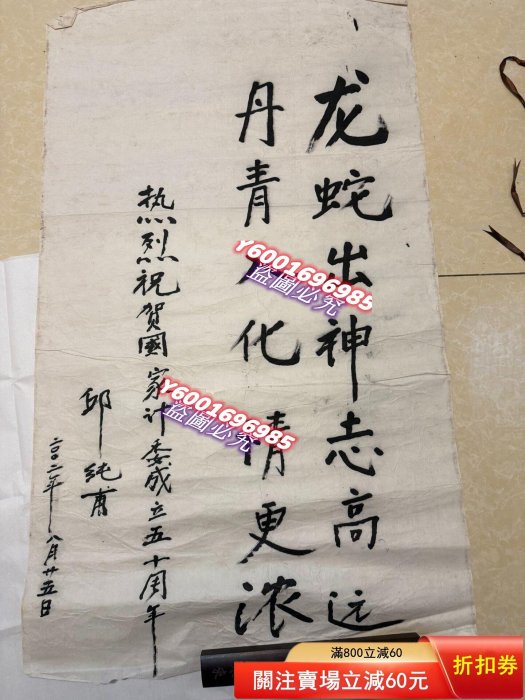 龙蛇出神志高远
丹青 化情更浓
热烈祝贺國家计委成立五十周年
邱純甫
二〇〇二年八月廿五日
Y6001696985
盜圖必究
Y6001696985
盜圖必究
滿800立減60
關注賣場立減60元
折扣券